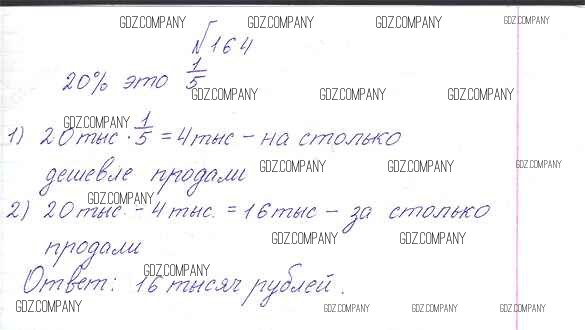 GDZ.COMPANY GDZ.COMPANY GDZ.COMPANY GDZ.COMPANY
№164
20% это 1/5
GDZ.COMPANY GDZ.COMPANY GDZ.COMPANY
GDZ.COMPANY
1) 20 тыс · 1/5 = 4 тыс – на столько
дешевле продали
GDZ.COMPANY GDZ.COMPANY GDZ.COMPANY
GDZ.COMPANY
2) 20 тыс. – 4 тыс. = 16 тыс – за столько
продали
GDZ.COMPANY GDZ.COMPANY
GDZ.COMPANY
Ответ: 16 тысяч рублей.
GDZ.COMPANY GDZ.COMPANY GDZ.COMPANY GDZ.COMPANY